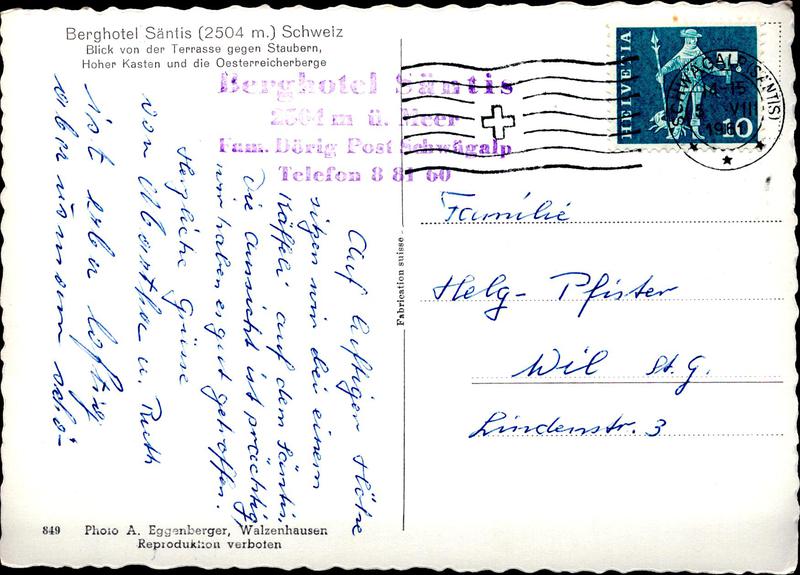 Berghotel Säntis (2504 m.) Schweiz
Blick von der Terrasse gegen Staubern,
Hoher Kasten und die Oesterreicherberge
Berghotel Säntis
2504 m ü. Meer
Fam. Dörig Post Schwägalp
Telefon 8 81 60
HELVETIA
10
SCHWÄGALP (SÄNTIS)
VIII
1961
Auf luftiger Höhe
sitzen wir bei einem
Käffeli auf dem Säntis.
Die Aussicht ist prächtig,
wir haben es gut getroffen.
Herzliche Grüsse
von Martha u. Ruth
ist
luftig
aber
Familie
Helg-Pfister
Wil St. G.
Lindenstr. 3
Fabrication suisse -
849 Photo A. Eggenberger, Walzenhausen
Reproduktion verboten